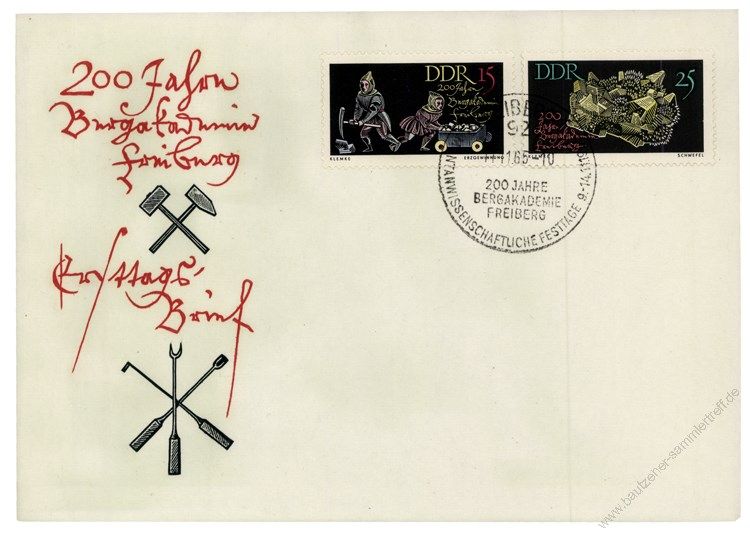 200 Jahre
Bergakademie
Freiberg
Ersttags-
Brief
DDR 15
200 Jahre
Bergakademie
Freiberg
KLEMKE ERZGEWINNUNG
DDR 25
200
Jahre
Bergakademie
Freiberg
SCHWEFEL
11.65-10
200 JAHRE
BERGAKADEMIE
FREIBERG
NTANWISSENSCHAFTLICHE FESTTAGE 9.-14.11.
www.bautzener-sammlertreff.de